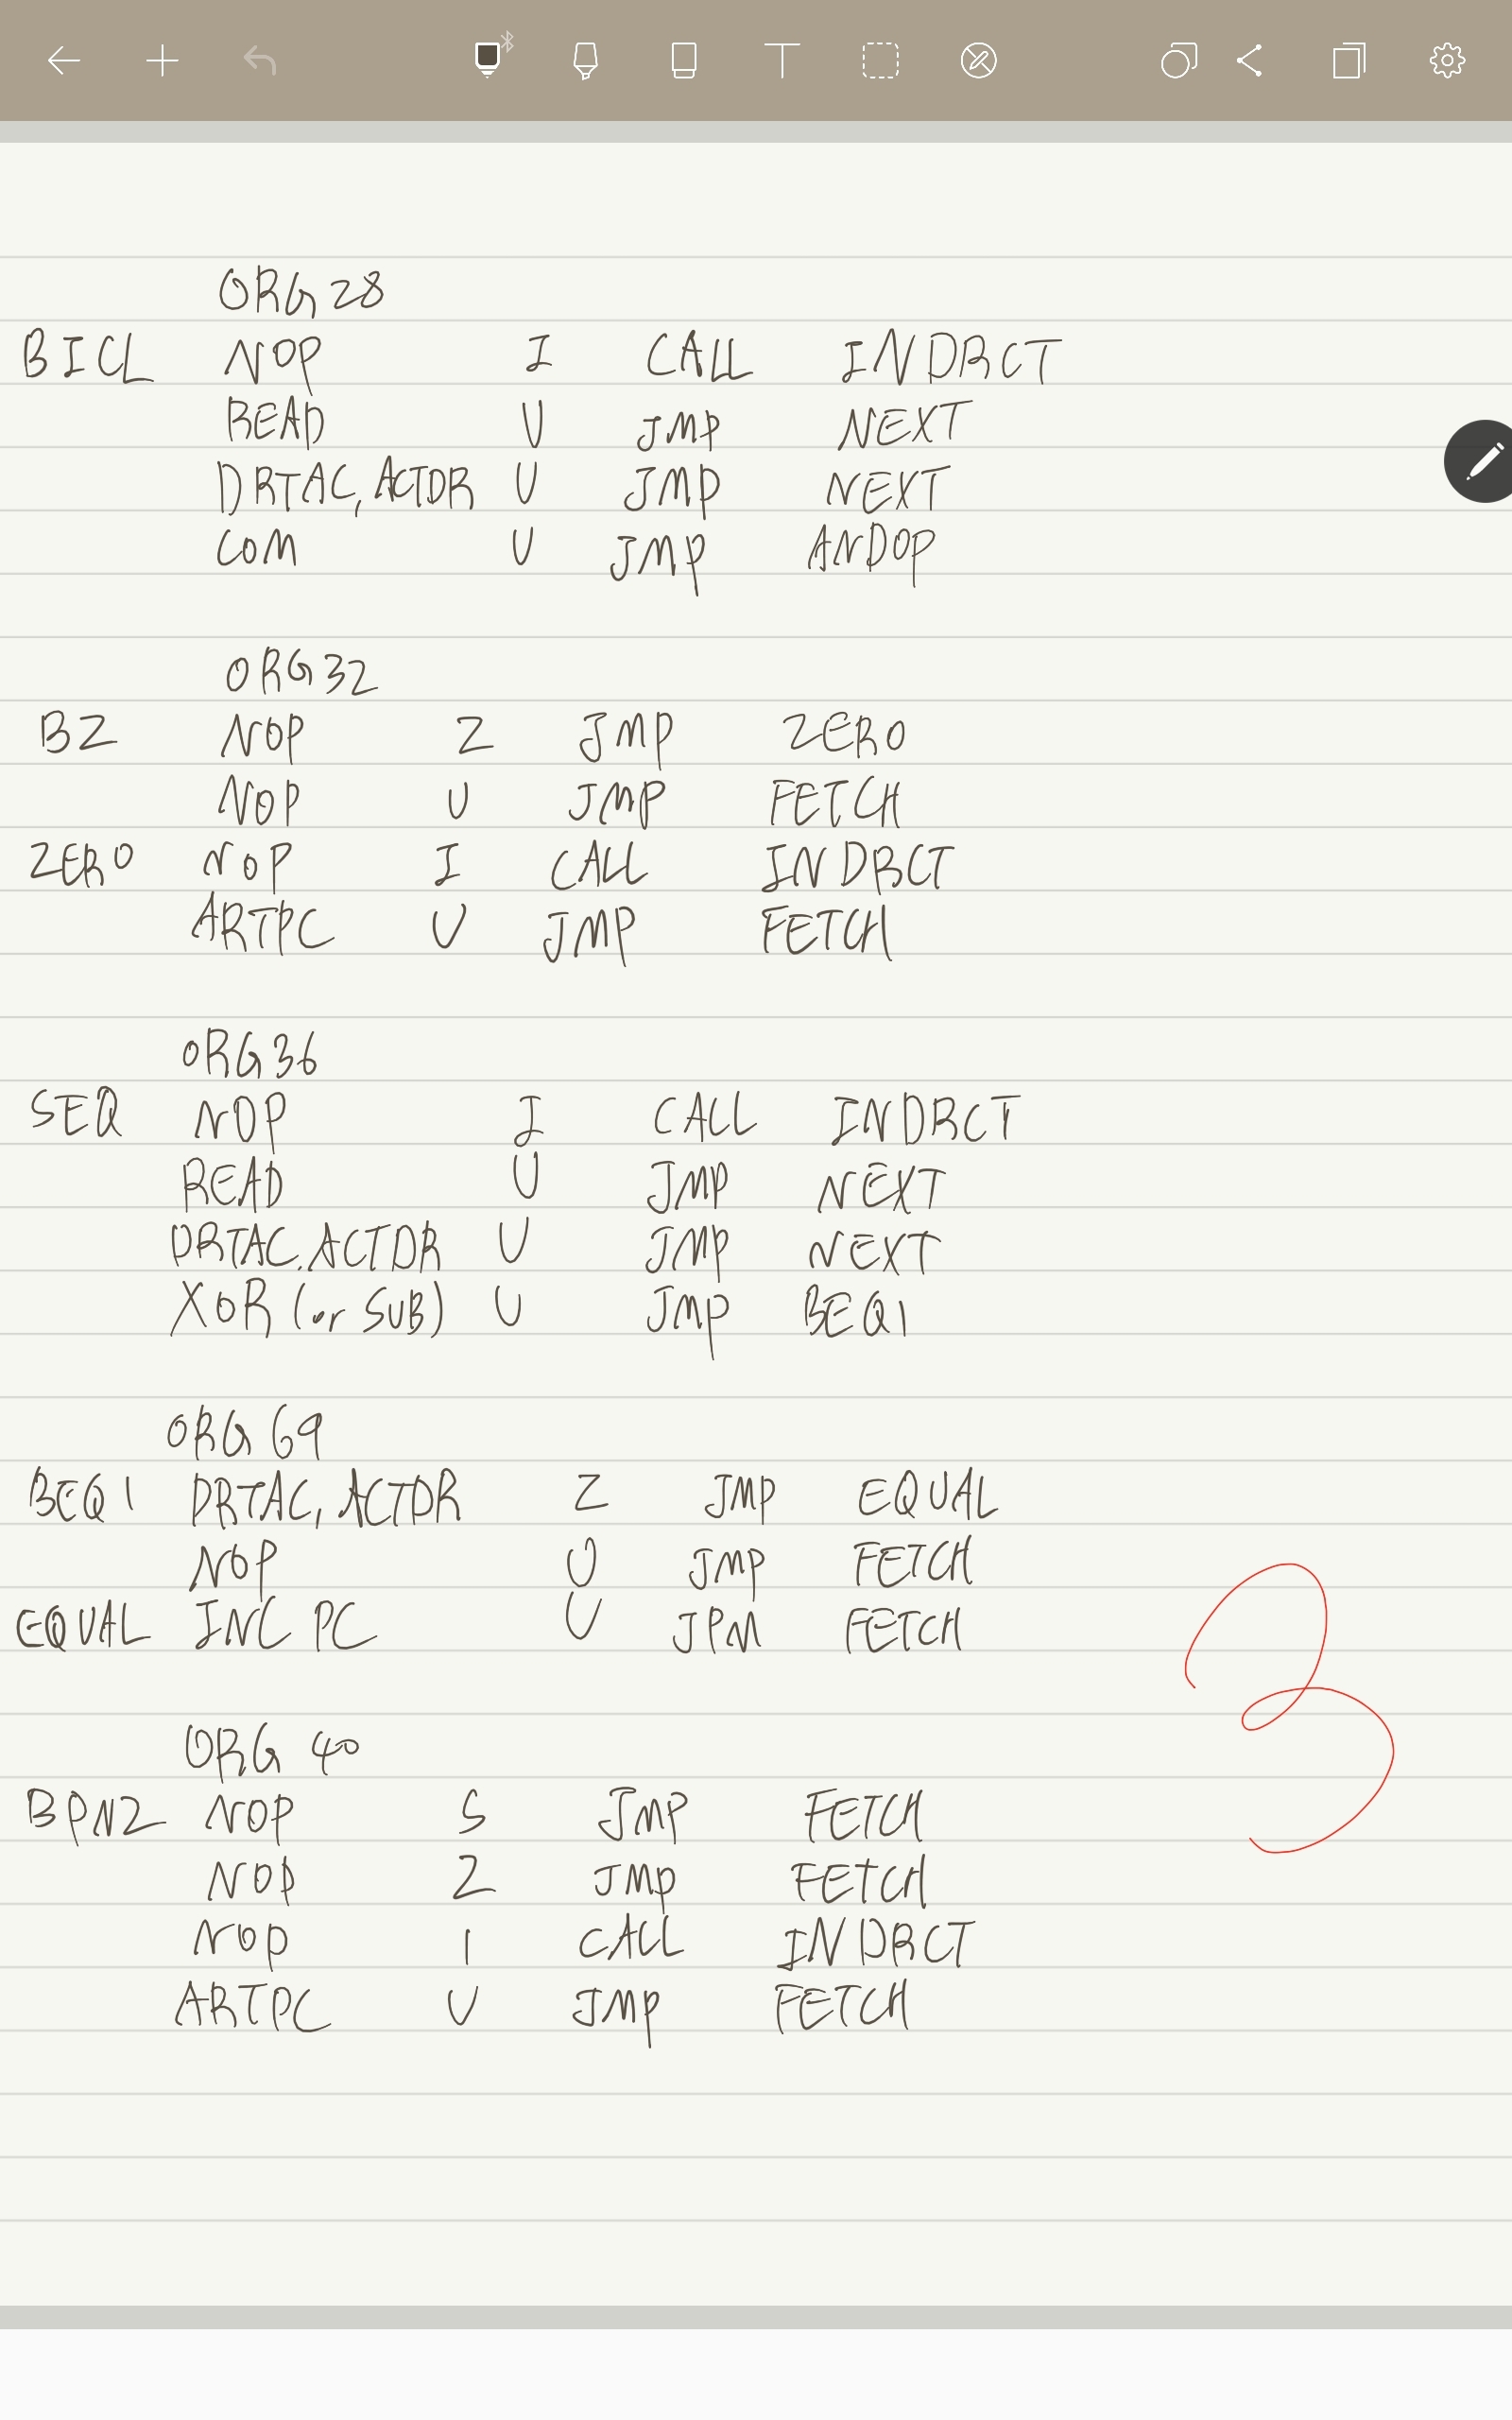 ORG 28
BICL NOP I CALL INDRCT
READ U JMP NEXT
DRTAC, ACTDR U JMP NEXT
COM U JMP ANDOP
ORG 32
BZ NOP Z JMP ZERO
NOP U JMP FETCH
ZERO NOP I CALL INDRCT
ARTPC U JMP FETCH
ORG 36
SEQ NOP I CALL INDRCT
READ U JMP NEXT
DRTAC, ACTDR U JMP NEXT
XOR (or SUB) U JMP BEQ1
ORG 69
BEQ1 DRTAC, ACTDR Z JMP EQUAL
NOP U JMP FETCH
EQUAL INC PC U JPM FETCH
3
ORG 40
BPNZ NOP S JMP FETCH
NOP Z JMP FETCH
NOP I CALL INDRCT
ARTPC U JMP FETCH